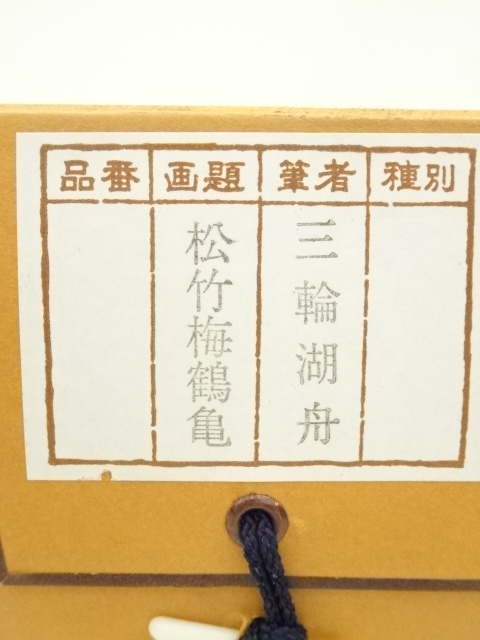 種別
筆者
三輪湖舟
画題
松竹梅鶴亀
品番